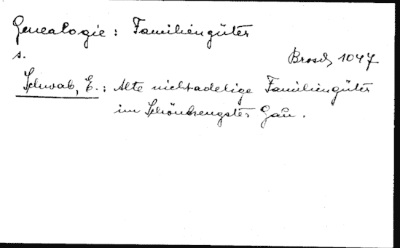 Genealogie: Familiengüter
s.
Brosch 1047
Schwab, E.: Alte nichtadelige Familiengüter
im Schönhengster Gau.